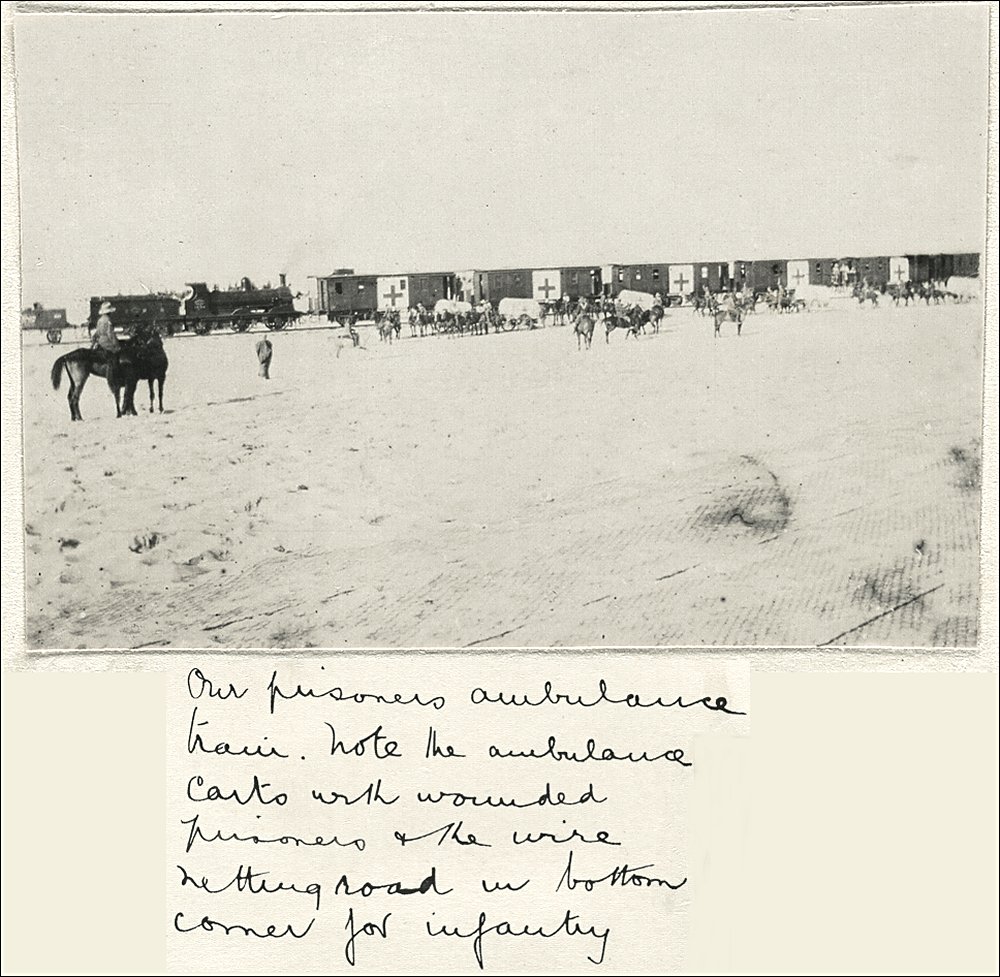 Our prisoners ambulance
train. Note the ambulance
Carts with wounded
prisoners & the wire
netting road in bottom
corner for infantry